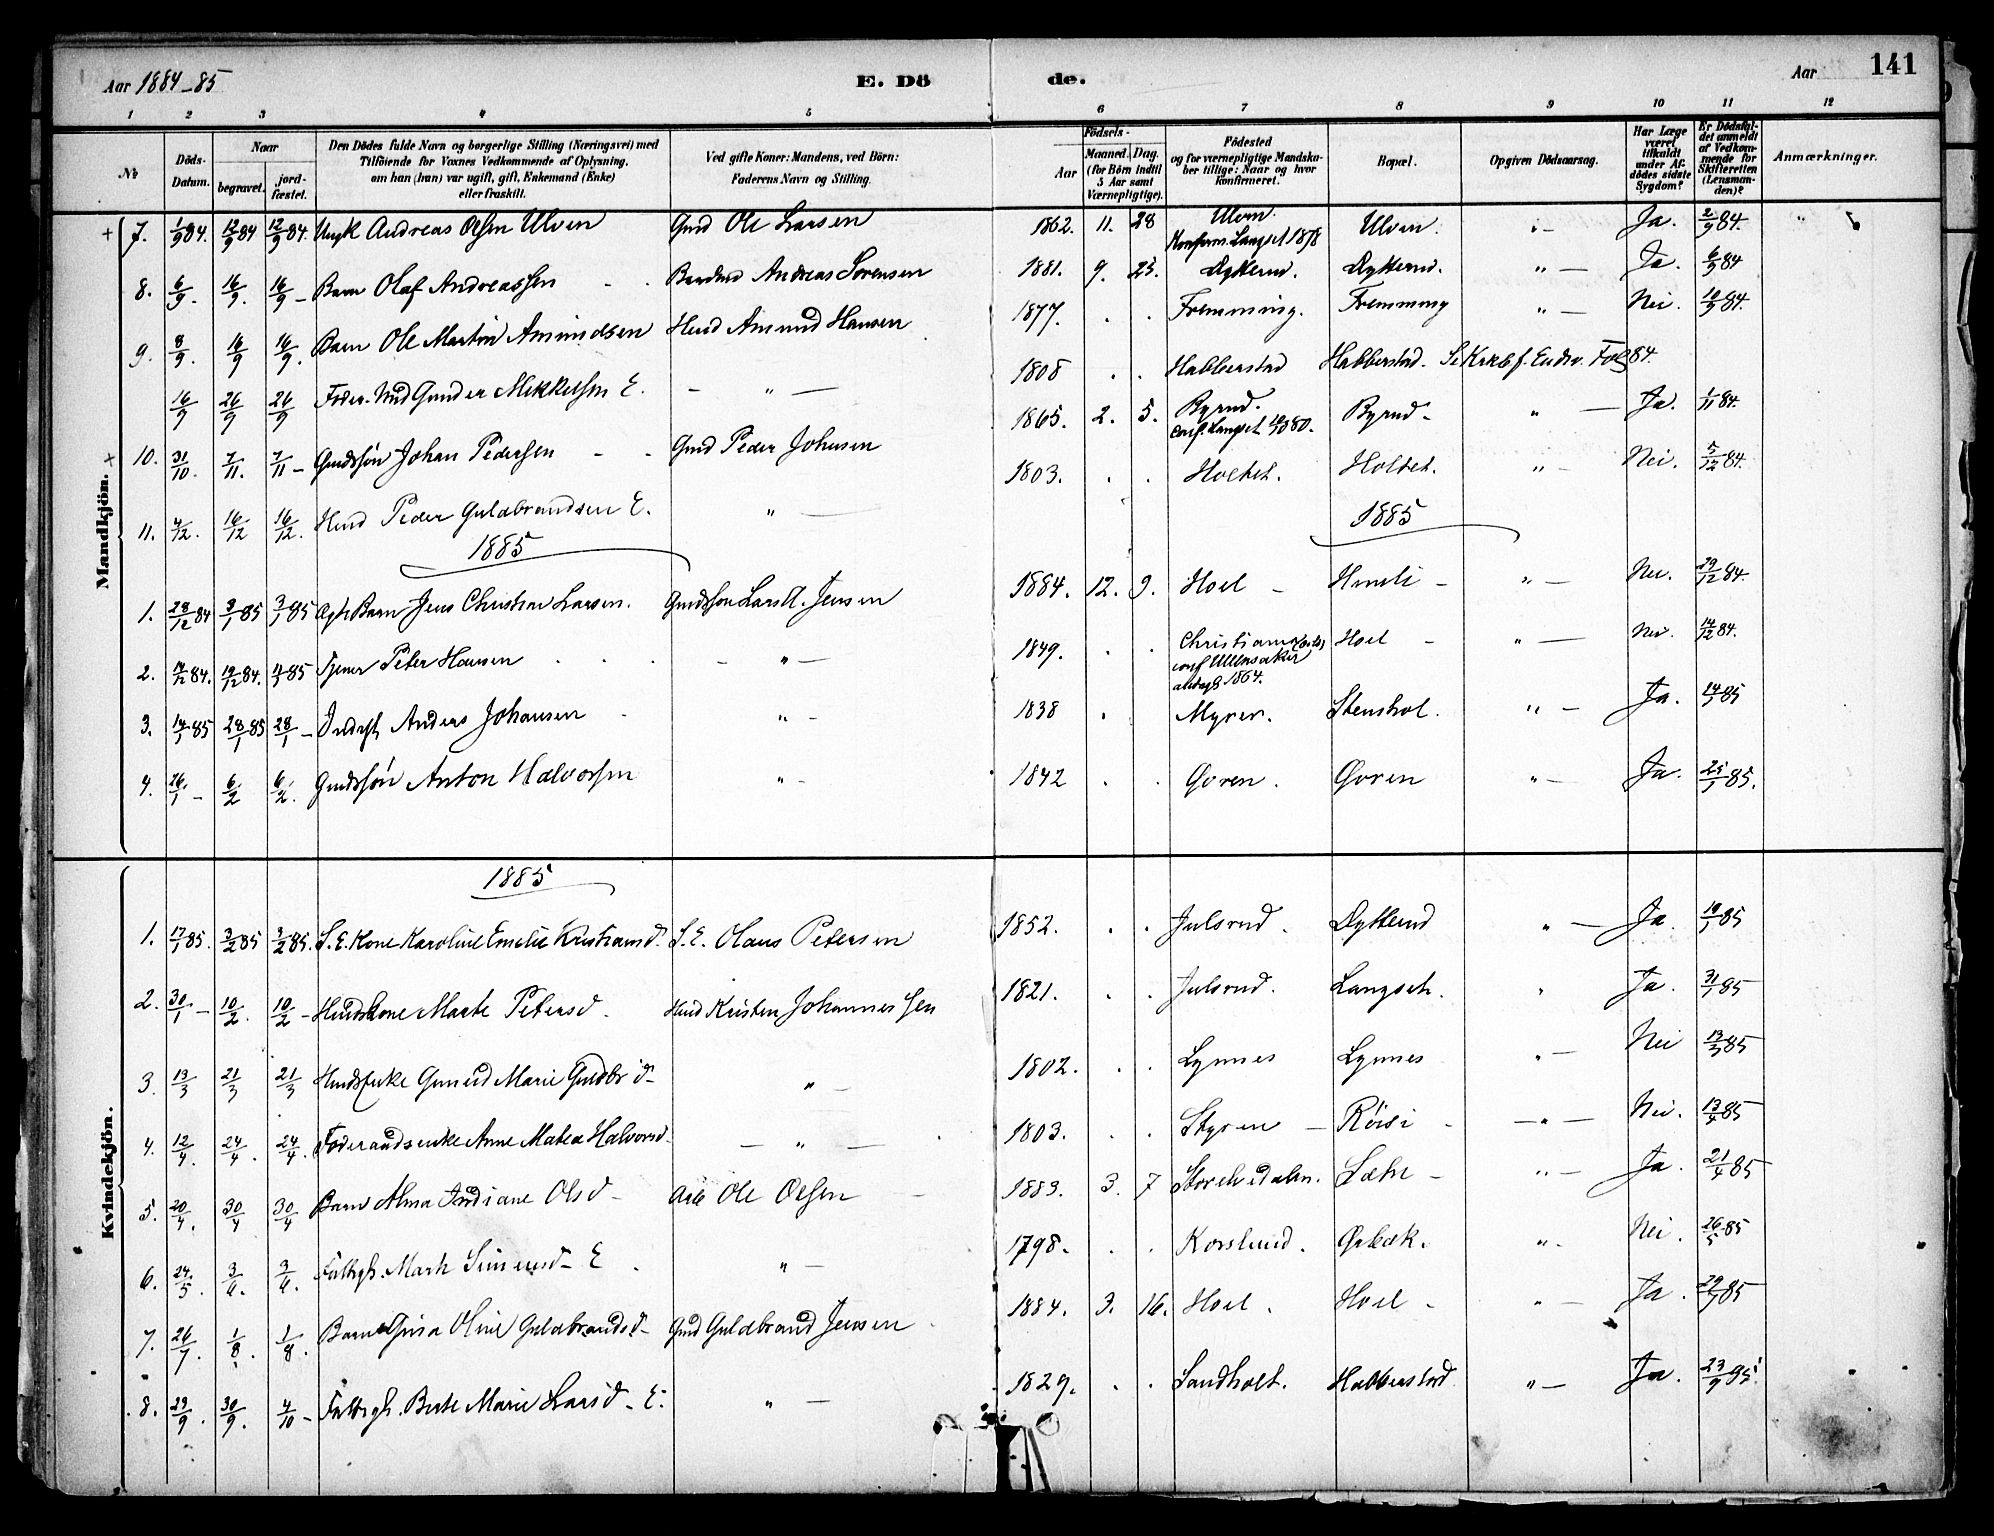 Aar 1884-85 E. Dö de. Aar 141
1 2 3 4 5 6 7 8 9 10 11 12
No Döds-Datum. Naar begravet. jord-fæstet. Den Dödes fulde Navn og borgerlige Stilling (Næringsvei) med Tilföiende for Voxnes Vedkommende af Oplysning, om han (hun) var ugift, gift, Enkemand (Enke) eller fraskilt. Ved gifte Koner: Mandens, ved Börn: Faderens Navn og Stilling. Födsels- Aar Maaned. Dag. (for Börn indtil 5 Aar samt Værnepligtige). Födested og for værnepligtige Mandskaber tillige: Naar og hvor Konfirmeret. Bopæl. Opgiven Dödsaarsag. Har Læge været tilkaldt under Afdödes sidste Sygdom? Er Dödsfaldet anmeldt af Vedkommende for Skifteretten (Lensmanden)? Anmærkninger.
Mandkjön.
+ 7. 1/9 84. 12/9 84 12/9 84. Ungk Andreas Olsen Ulven Gmd Ole Larsen 1862. 11. 28 Ulven. Konfirm. Langset 1878 Ulven. " - Ja. 2/9 84. "
8. 6/9. 16/9. 16/9 - Barn Olaf Andreassen Andreas Sorensen 1881. 9. 25. Dytterud. Dytterud. " - Ja. 6/9 84
9. 8/9. 16/9 16/9. Barn Ole Martin Amundsen Hmd Amund Hansen 1877. . . Fremming. Fremming " - Nei. 10/9 84.
16/9 26/9 26/9 Gunder Mikkelsen E. - " - 1808 . . Habberstad Habberstad. 84.
+ 10. 31/10. 7/11. 7/11 - Gmdssøn Johan Pedersen - - Gmd Peder Johnsen 1865. 2. 5. Byrud. conf. Langset 80. Byrud - " - Ja. 1/11 84.
11. 4/12. 16/12 16/12. Hmd Peder Guldbrandsen E. " - 1803. . . Holtet. Holtet. " - Nei. 5/12 84.
1885 1885
1. 28/12 84 3/1 85 3/1 85 Barn Jens Christian Larsen. Gmdsson Lars A. Jensen 1884. 12. 9. Hoel - " - Nei. 29/12 84.
2. 84. 19/12 84. 85 Tjener Peter Hansen - " - 1849. . . conf Ullensaker 1864. Hoel - " - Nei. 14/12 84.
3. 14/1 85 28/1 85 28/1 - Inderst Anders Johansen - " - 1838 . Myrer. Stenshol. " - Ja. 14/1 85
4. 26/1 - 6/2 6/2. Gmdssøn Anton Halvorsen " - 1842 . . Goren. Goren " - Ja. 25/1 85.
Kvindekjön.
1885
1. 17/1 85. 3/2 85 3/2 85. S.E. Kone Karoline Emelie Kristiansd. S.E. Olaus Petersen 1852. . . Julsrud. Dytterud " - Ja. 19/1 85
2. 30/1 - 10/2. 10/2 - Hmdskone Marte Petersd. Hmd Kristen Johannessen 1821. . . Julsrud. Langseth. " Ja. 31/1 85
3. 13/3 21/3 21/3 Hmdsenke Gunild Marie Guldbrd - " - 1802. . . Lynnes Lynnes " - Nei 13/3 85
4. 12/4. 24/4. 24/4. Foderaadsenke Anne Matea Halvorsd. - " - 1803. . . Styren - Røisi - " - Nei. 13/4 85
5. 20/4. 30/4 30/4 Barn Alma Indiane Olsd - Ole Olsen - 1883. 3. 7 . Sæter - " - Ja. 21/4 85
6. 24/5. 3/6. 3/6. Fattigl. Marte Simensd - E. " - 1798. . . Korslund. Ørbæk. " . Nei. 26/5 85
7. 26/7. 1/8. 1/8. Barn Gina Oline Guldbrandsd - Gmd Guldbrand Jensen 1884. 3. 16. Hoel. Hoel - " - Ja. 29/7 85
8. 23/9. 30/9. 4/10 - Fattigl. Berte Marie Larsd - E. " - 1829. . . Sandholt. Habberstad " - Ja. 23/9 85